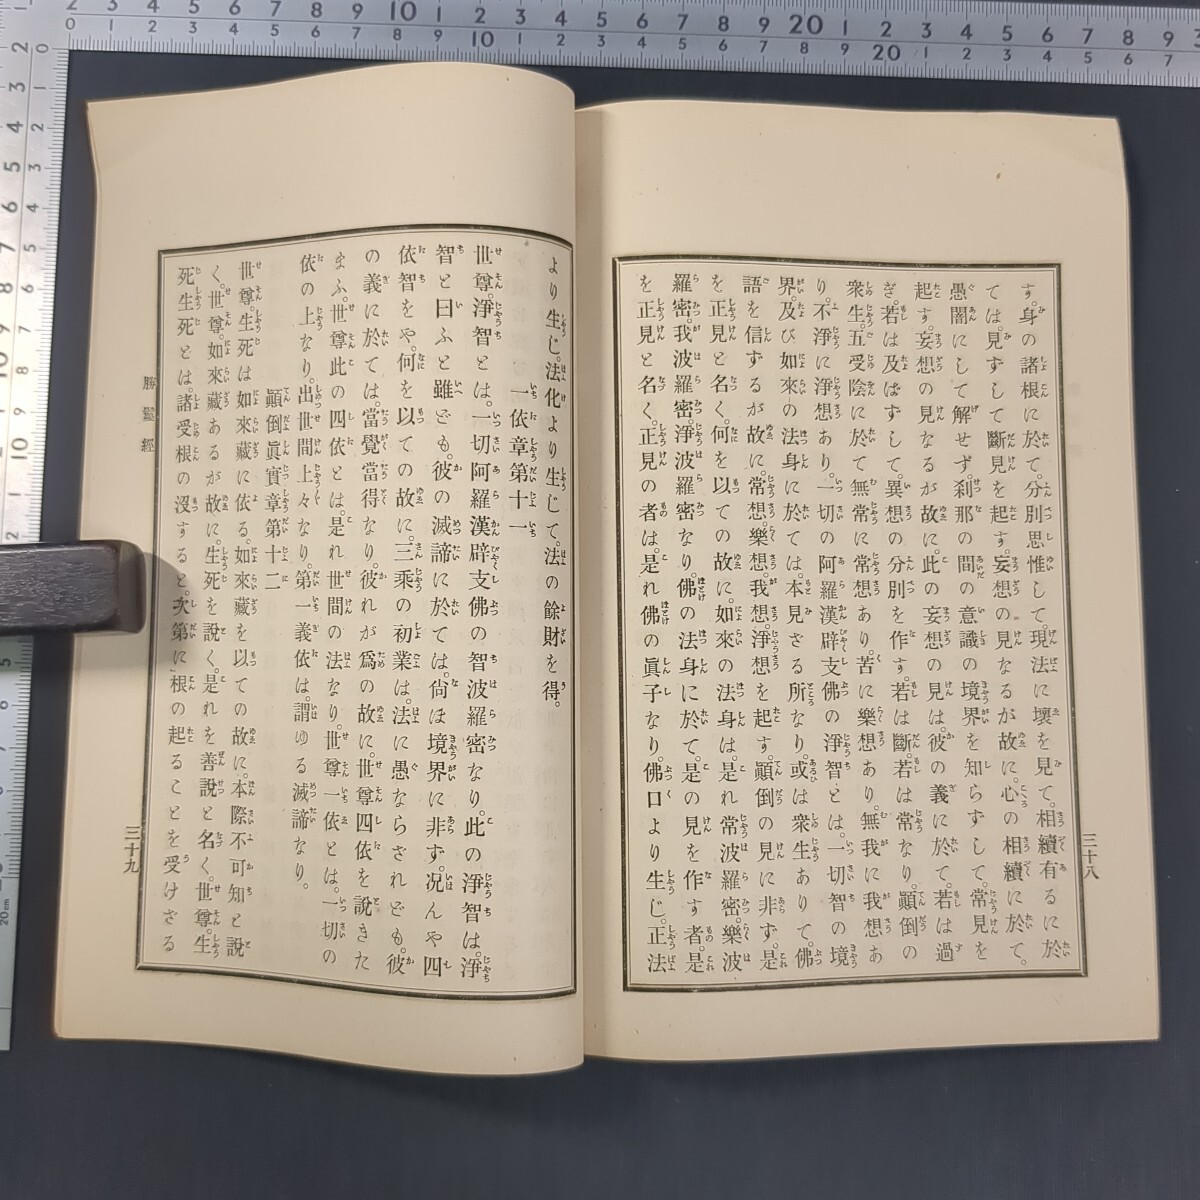 す。身の諸根に於て。分別思惟して。現法に壞を見て。相續有るに於
ては。見ずして斷見を起す。妄想の見なるが故に。心の相續に於て。
愚闇にして解せず、刹那の間の意識の境界を知らずして。常見を
起す。妄想の見なるが故に。此の妄想の見は。彼の義に於て。若は過
ぎ。若は及ばずして。異想の分別を作す。若は斷。若は常なり。顚倒の
衆生。五受陰に於て無常に常想あり。苦に樂想あり。無我に我想あ
り。不淨に淨想あり。一切の阿羅漢辟支佛の淨智とは。一切智の境
界。及び如來の法身に於ては。本見ざる所なり。或は衆生ありて。佛
語を信ずるが故に。常想。樂想。我想。淨想を起す。顚倒の見に非ず。是
を正見と名く。何を以ての故に。如來の法身は。是れ常波羅密。樂波
羅密。我波羅密。淨波羅密なり。佛の法身に於て。是の見を作す者。是
を正見と名く。正見の者は。是れ佛の眞子なり。佛口より生じ。正法
三十八
より生じ。法化より生じて。法の餘財を得。
一依章第十一
世尊。淨智とは。一切阿羅漢辟支佛の智波羅密なり。此の淨智は。淨
智と曰ふと雖ども。彼の滅諦に於ては。尙ほ境界に非ず。况んや四
依智をや。何を以ての故に。三乘の初業は。法に愚ならざれども。彼
の義に於ては。當覺當得なり。彼れが爲の故に。世尊四依を説きた
まふ。世尊此の四依とは。是れ世間の法なり。世尊一依とは。一切の
依の上なり。出世間上々なり。第一義依は。謂ゆる滅諦なり。
顚倒眞實章第十二
世尊生死は如來藏に依る。如來藏を以ての故に。本際不可知と說
く。世尊。如來藏あるが故に。生死を說く。是れを善說と名く。世尊。生
死生死とは。諸受根の沒すると。次第に根の起ることを受けざる
勝鬘經
三十九